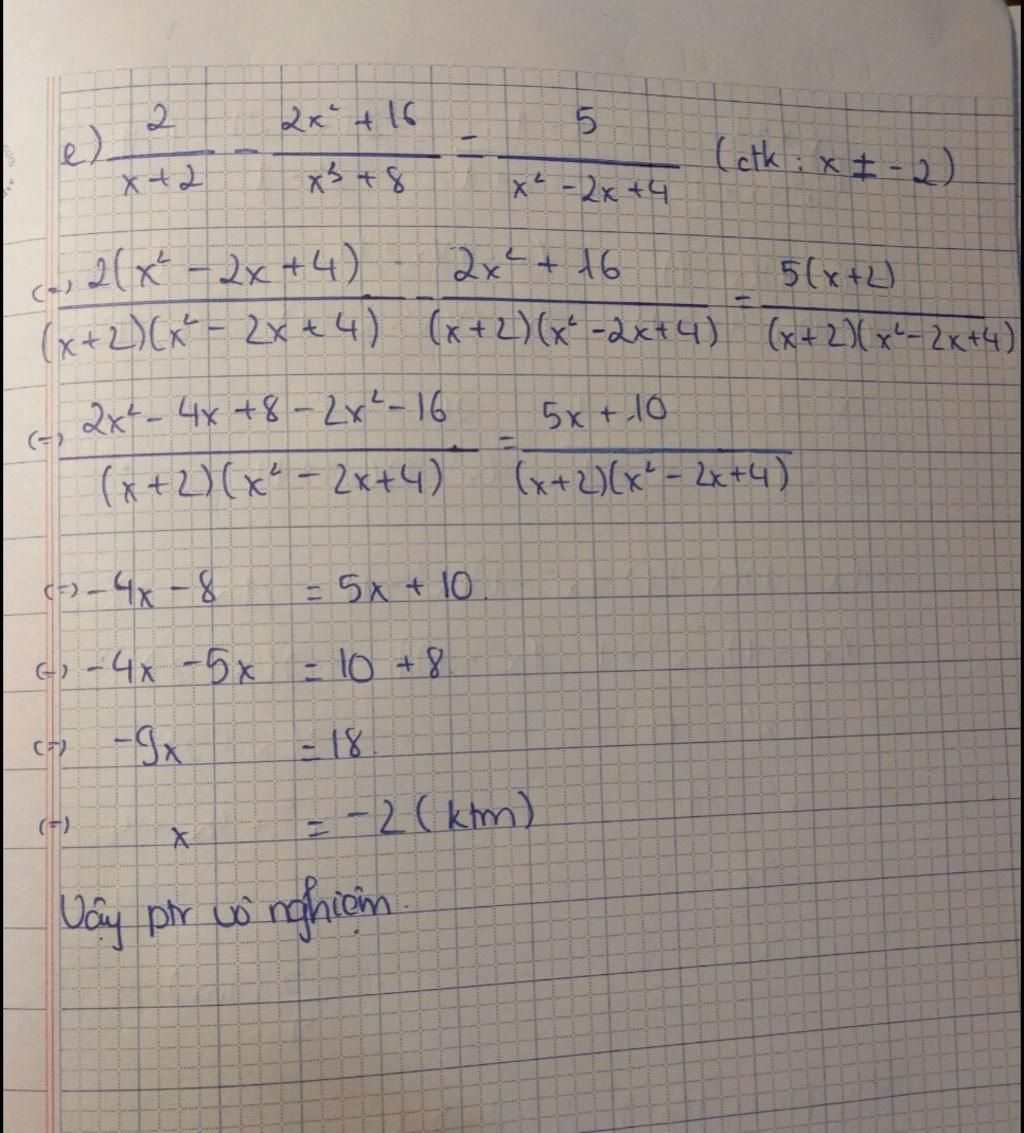 e) 2/(x+2) - (2x² + 16)/(x³ + 8) = 5/(x² - 2x + 4) (đk : x ≠ -2)
(=) 2(x² - 2x + 4)/((x+2)(x² - 2x + 4)) - (2x² + 16)/((x+2)(x² - 2x + 4)) = 5(x+2)/((x+2)(x² - 2x + 4))
(=) (2x² - 4x + 8 - 2x² - 16)/((x+2)(x² - 2x + 4)) = (5x + 10)/((x+2)(x² - 2x + 4))
(=) -4x - 8 = 5x + 10
(=) -4x - 5x = 10 + 8
(=) -9x = 18
(=) x = -2 (ktm)
Vậy ptr vô nghiệm.